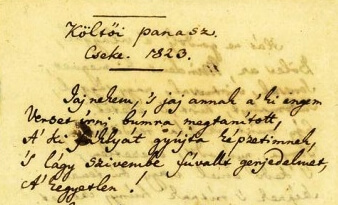 Költői panasz.
Cseke. 1823.
Jaj nekem, 's jaj annak a' ki engem
Verset írni búmra megtanított,
A' ki fáklyát gyújta képzetimnek,
'S lágy szivembe fúvallt gerjedelmet,
A' kegyetlen!